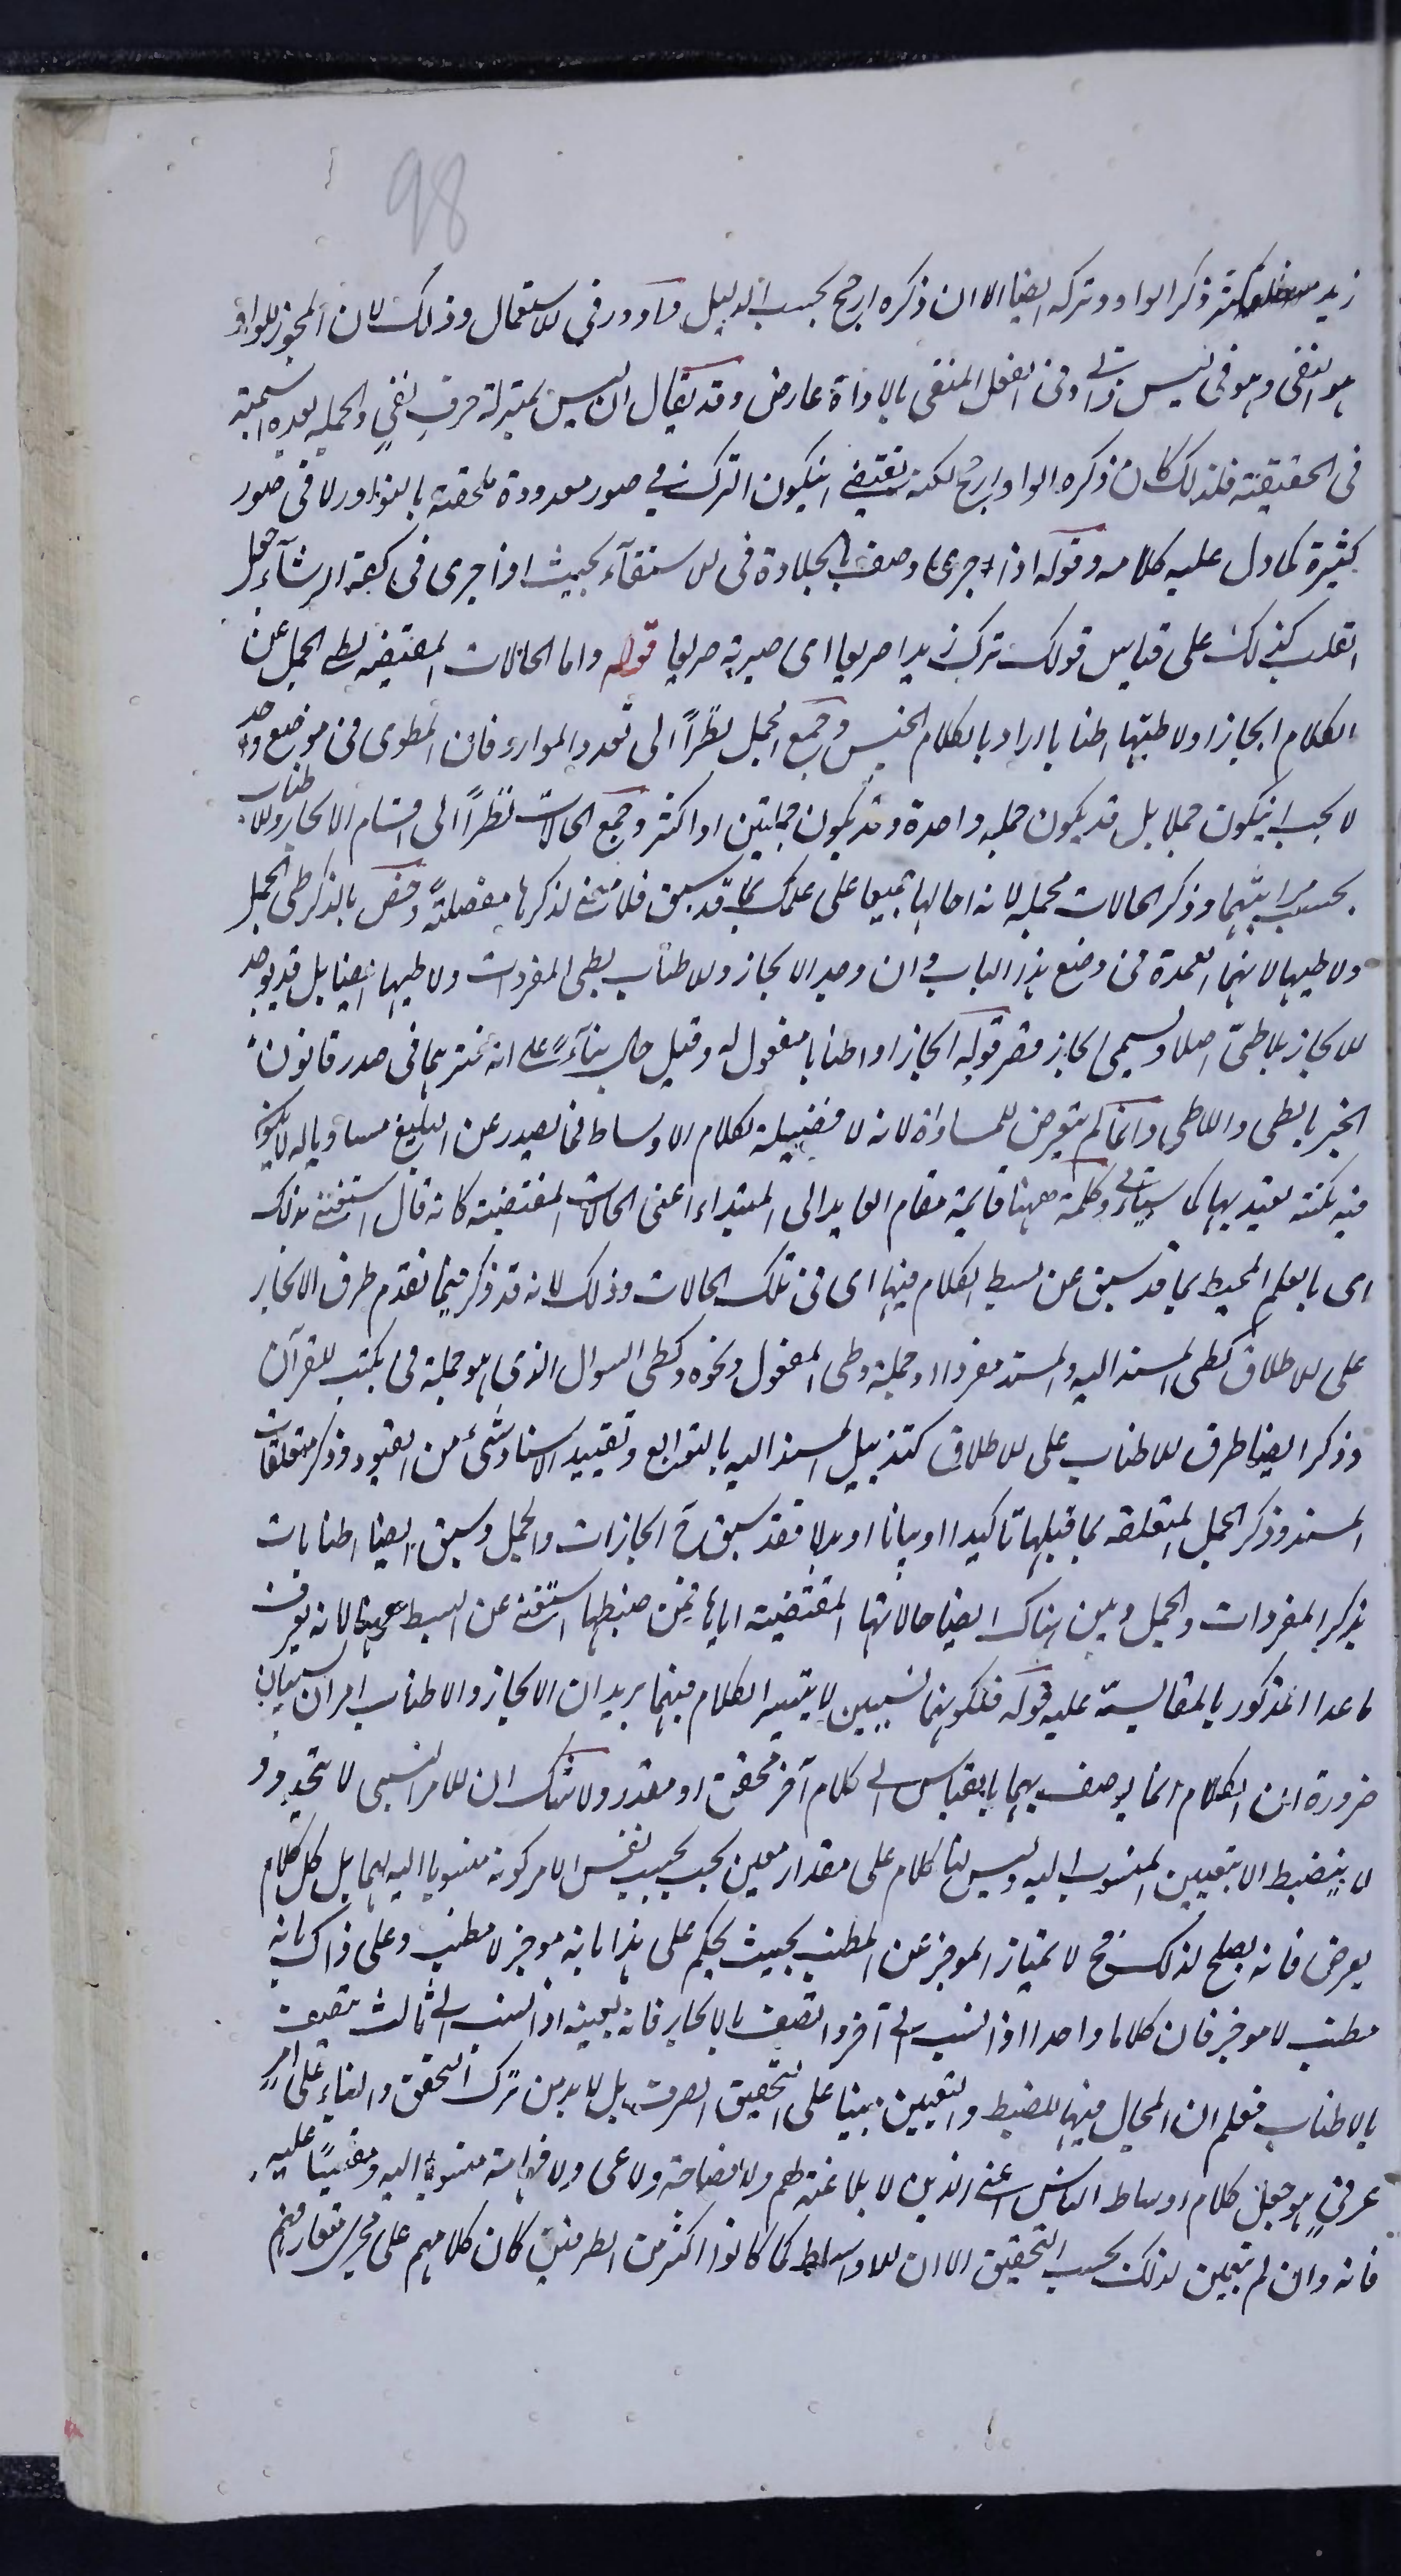 98
زيد كثر ذكر الواو وتركه ايضا الا ان ذكره ارجح بحسب الدليل وأدور في الاستعمال وذلك لان المجوز للواو
هو النفى وهو فى ليس ذاتى وفى الفعل المنفى بالاداة عارض وقد يقال ان ليس بمنزلة حرف نفي والجملة بعده اسمية
فى الحقيقة فلذلك كان ذكره الواو ارجح لكنه يقتضى ان يكون الترك فى صور معدودة ملحقة بالنوادر لا فى صور
كثيرة كما دل عليه كلامه وقوله اذا جرى وصف بالجلادة فى الاستقاء بحيث اذا جرى فى كفه الرشآء جعل
القلب كذلك على قياس قولك ترك زيدا حريبا اى صيرته حريبا قوله واما الحالات المقتضية لطى الجمل عن
الكلام ايجازا ولا طيها اطنابا اراد بالكلام الجنس وجمع الجمل نظراً الى تعدد الموارد فان المطوى فى موضع واحد
لا يجب ان يكون جملا بل قد يكون جملة واحدة وقد يكون جملتين او اكثر وجمع الحالات نظراً الى اقسام الايجاز والاطناب
بحسب مراتبهما وذكر الحالات مجملة لانه احالها جميعا على علمك بما قد سبق فلا معنى لذكرها مفصلةً وخص بالذكر طى الجمل
ولا طيها لانهما العمدة فى وضع هذا الباب وان وجد الايجاز والاطناب بطى المفردات ولا طيها ايضا بل قد يوجد
الايجاز بلا طىّ اصلا ويسمى ايجاز قصر قوله ايجازا او اطنابا مفعول له وقيل حال بناءً على انه فسرهما فى صدر قانون
الخبر بالطى واللاطى وانما لم يتعرض للمساواة لانه لا فضيلة لكلام الاوساط فما يصدر عن البليغ مساويا له لا يكون
فيه نكتة يعتد بها كما سياتى وكلمة ههنا قائمة مقام العايد الى المبتداء اعنى الحالات المقتضية كانه قال استغنى بذلك
اى بالعلم المحيط بما قد سبق عن بسط الكلام فيها اى فى تلك الحالات وذلك لانه قد ذكر فيما تقدم طرق الايجاز
على الاطلاق كطى المسند اليه والمسند مفردا او جملة وطى المفعول ونحوه وكطى السوال الذى هو جملة فى يكتب القرآن
وذكر ايضا طرق الاطناب على الاطلاق كتذييل المسند اليه بالتوابع وتقييد الاسناد بشئ من القيود وذكر متعلقات
المسند وذكر الجمل المتعلقة بما قبلها تاكيدا او بيانا او بدلا فقد سبق ايجازات والجمل وسبق ايضا اطنابات
بذكر المفردات والجمل وبين هناك ايضا حالاتها المقتضية اياها فمن ضبطها استغنى عن البسط ههنا لانه يعرف
ما عدا المذكور بالمقايسة عليه قوله فلكونهما نسبيين لا يتيسر الكلام فيهما يريد ان الايجاز والاطناب امران نسبيان
ضرورة ان الكلام انما يوصف بهما بالقياس الى كلام آخر محقق او مقدر ولا شك ان الامر النسبى لا يتحدد و
لا ينضبط الا بتعيين المنسوب اليه وليس لنا كلام على مقدار معين يجب بحسب نفس الامر كونه منسوبا اليه لهما بل كل كلام
يعرض فانه يصلح لذلك فح لا يمتاز الموجز عن المطنب بحيث يحكم على هذا بانه موجز لا مطنب وعلى ذاك بانه
مطنب لا موجز فان كلاما واحدا اذا نسب الى آخر واتصف بالايجاز فانه بعينه اذا نسب الى ثالث يتصف
بالاطناب فعلم ان لا مجال فيهما للضبط والتعيين مبنيا على التحقيق الصرف بل لا بد من ترك التحقق والبناء على امرٍ
عرفيٍ هو جعل كلام اوساط الناس اعنى الذين لا بلاغة لهم ولا فصاحة ولا عى ولا فهاهة منسوبا اليه ومقيسًا عليه
فانه وان لم يتعين لذلك بحسب التحقيق الا ان الاوساط لما كانوا اكثر من الطرفين كان كلامهم على مجرى متعارفهم